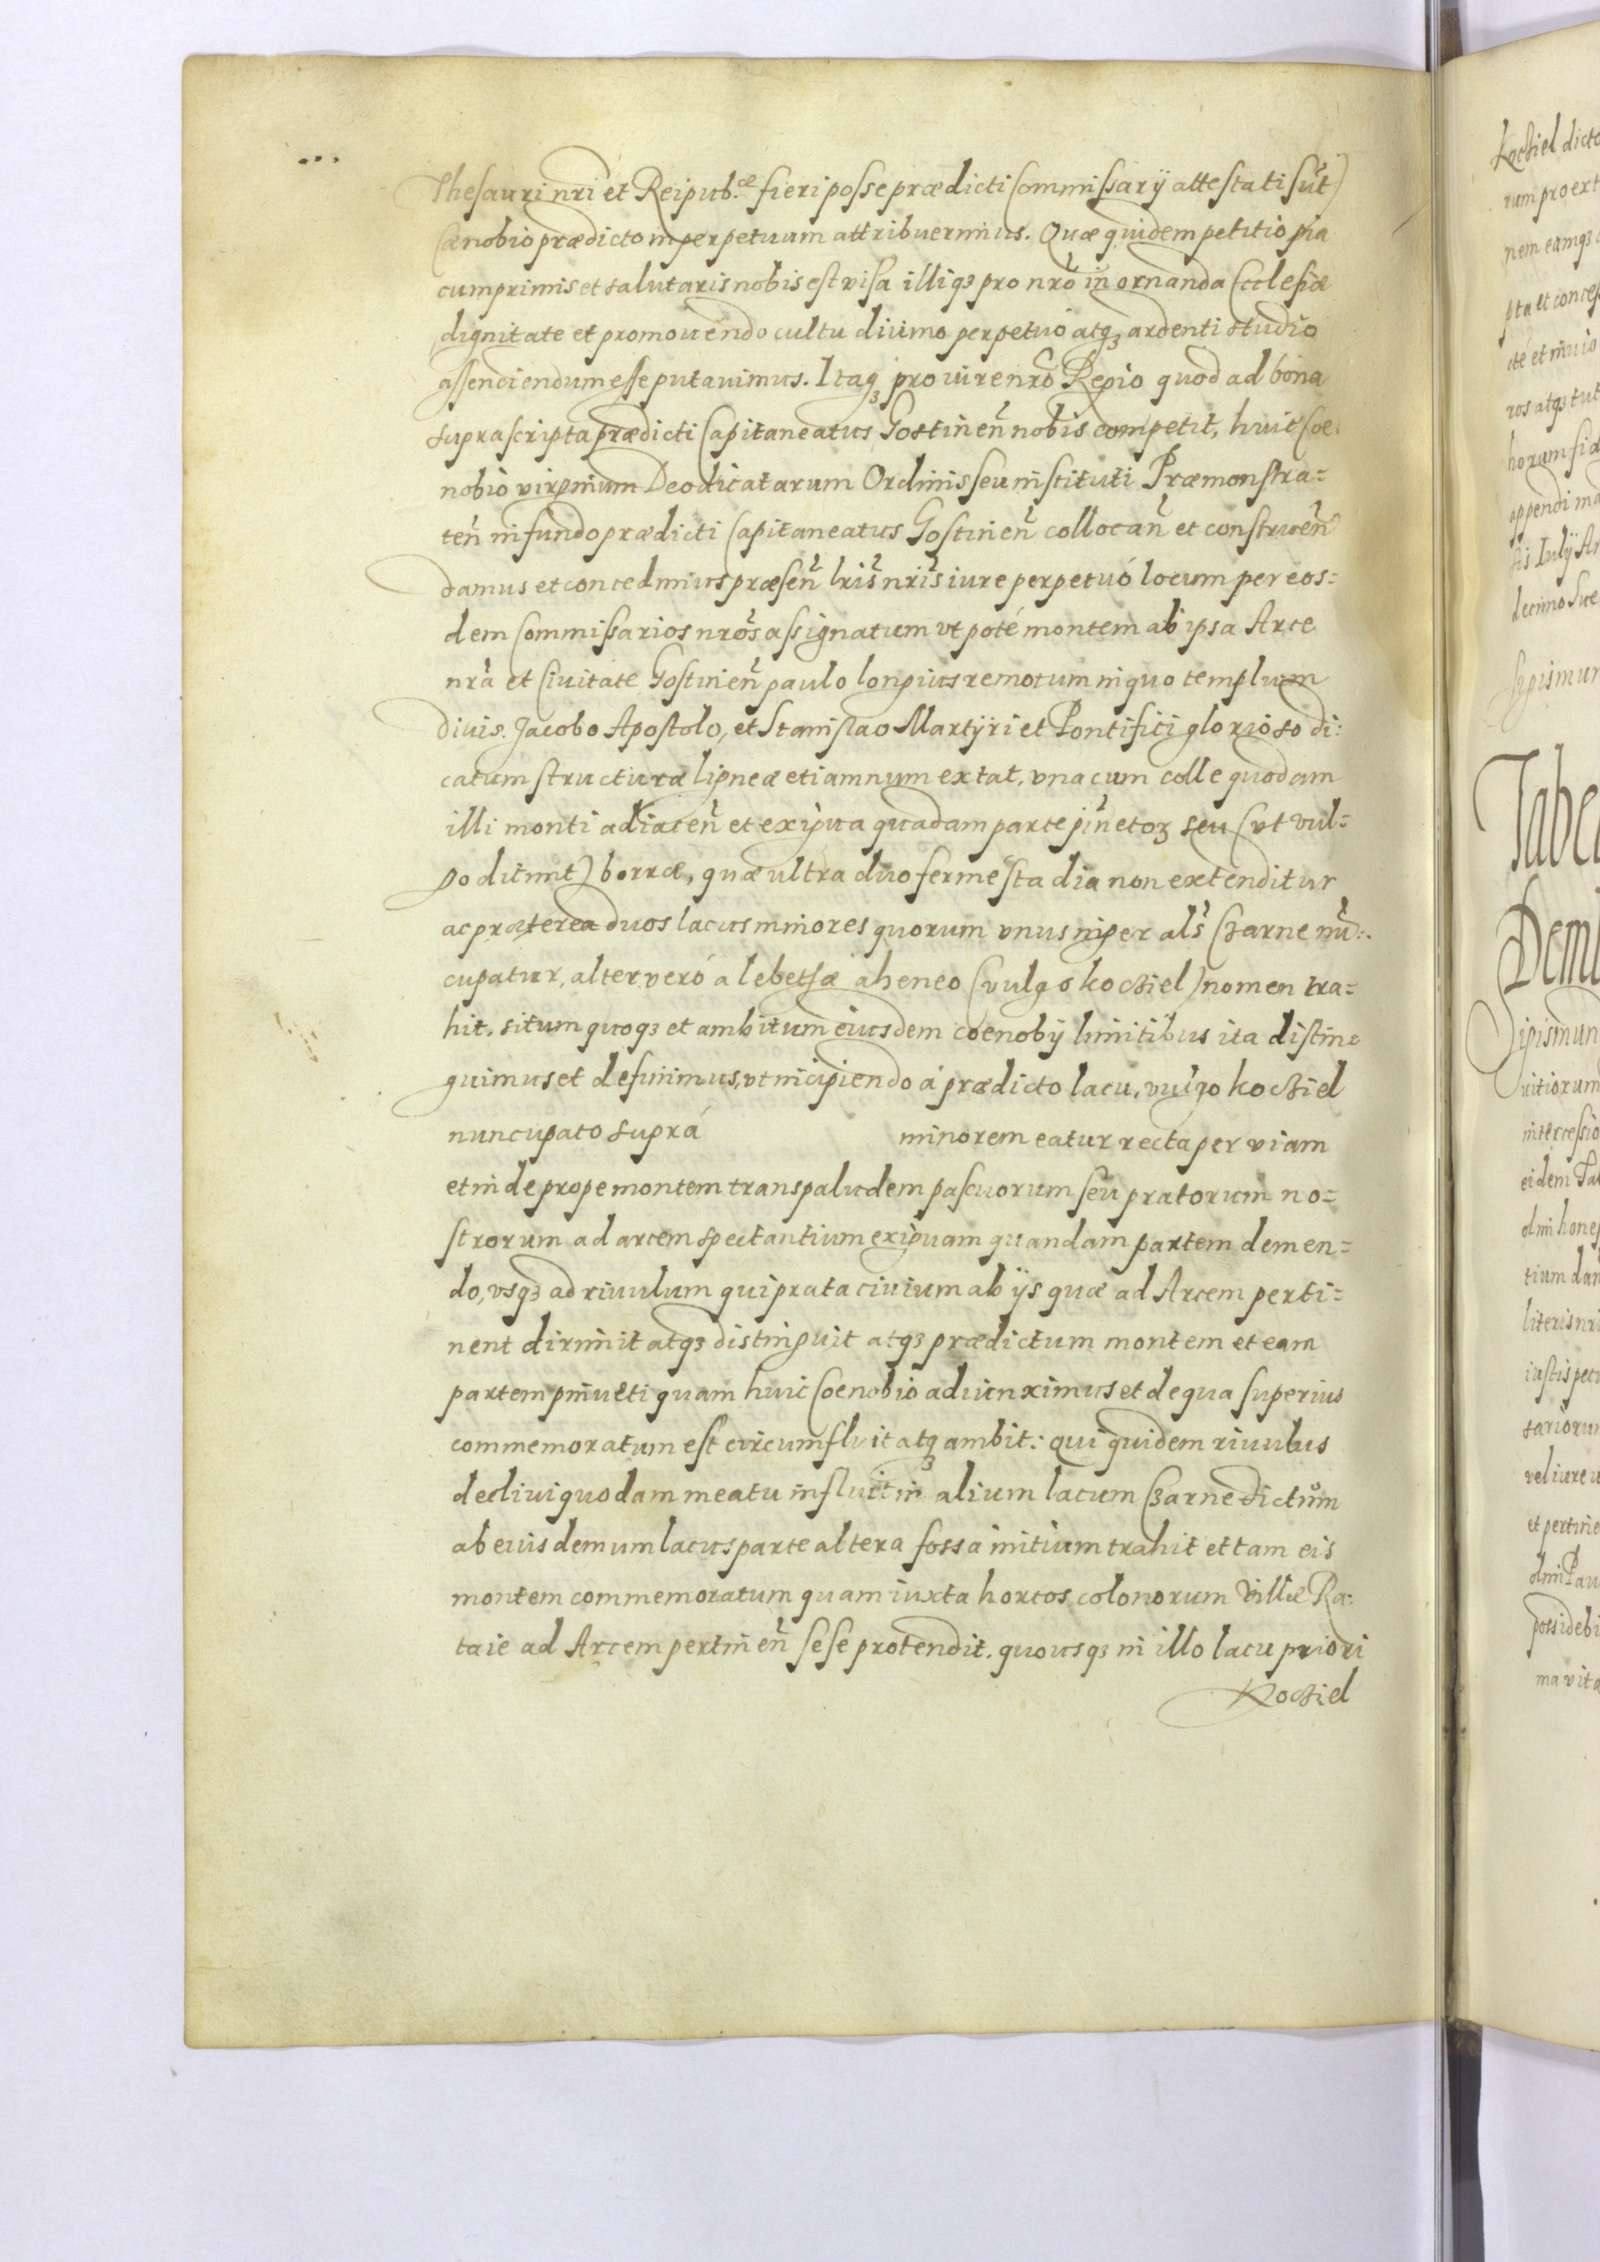 Thesauri nri et Reipub.cæ fieri posse prædicti Commissarÿ attestati sūt)
Cænobio prædicto in perpetuum attribuerimus. Quæ quidem petitio pia
cumprimis et salutaris nobis est visa illiqꝫ pro nrō in ornanda Ecclesiæ
dignitate et promouendo cultu diuino perpetuo atqꝫ ardenti studio
assenciendum esse putauimus. Itaqꝫ pro iure nrō Regio quod ad bona
suprascripta prædicti Capitaneatus Gostinen̄ nobis competit, huic Coe:
nobio virginum Deo dicatarum Ordinis seu instituti Præmonstra=
ten̄ in fundo prædicti Capitaneatus Gostinen̄ collocan̄ et construen̄
damus et concedimus præsen̄ lris̄ nris̄ iure perpetuó locum per eos=
dem Commissarios nrōs assignatum vt poté montem ab ipsa Arce
nrā et Ciuitate Gostinen̄ paulo longius remotum in quo templum
diuis Jacobo Apostolo, et Stanislao Martÿri et Pontifici glorioso di:
catum structuræ ligneæ etiamnum extat, vna cum colle quodam
illi monti adiacen̄ et exigua quadam parte pin̄etoꝫ seu (vt vul=
go dicunt) borræ, quæ ultra duo ferme stadia non extenditur
ac præterea duos lacus minores quorum vnus niger als̄ Czarne nū:
cupatur, alter veró a lebetsæ aheneo (vulgo koctiel) nomen tra=
hit. situm quoqꝫ et ambitum eiusdem coenobÿ limitibus ita distin=
guimus et definimus, vt incipiendo á prædicto lacu, vulgo koctiel
nuncupato suprá minorem eatur recta per viam
et inde prope montem trans paludem pascuorum seu pratorum no=
strorum ad arcem spectantium exiguam quandam partem demen=
do, vsqꝫ ad riuulum qui prata ciuium ab ÿs quæ ad Arcem perti=
nent dirimit atqꝫ distinguit atqꝫ prædictum montem et eam
partem pinueti quam huic Coenobio adiunximus et de qua superius
commemoratum est circumfluit atqꝫ ambit: qui quidem riuulus
decliui quodam meatu influit in alium lacum Czarne dictum
ab eius demum lacus parte altera fossa initium trahit et tam eis
montem commemoratum quam iuxta hortos colonorum villæ Ra:
taie ad Arcem pertinen̄ sese protendit. quousqꝫ in illo lacu priori
Koctiel
Koctiel dicto
rum pro ext
nem eamqꝫ
pta et concess
ros atqꝫ tut
horum fid
appendi ma
tis Iulÿ
decimo
Demi
uitiorum
intercessio
eidem
tium dan
literis nri
iustis
veliure
et pertine
possidebi
ma vita